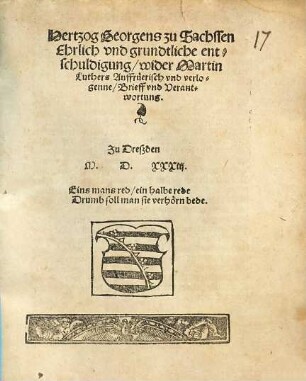 Hertzog Georgens zu Sachssen
Ehrlich vnd grundtliche ent⸗
schuldigung/ wider Martin
Luthers Auffrüerisch vnd verlo⸗
genne/ Brieff vnd Verant⸗
wortung.
Zu Dreßden
M. D. XXXiij.
Eins mans red/ ein halbe rede
Drumb soll man sie verhörn bede.
17